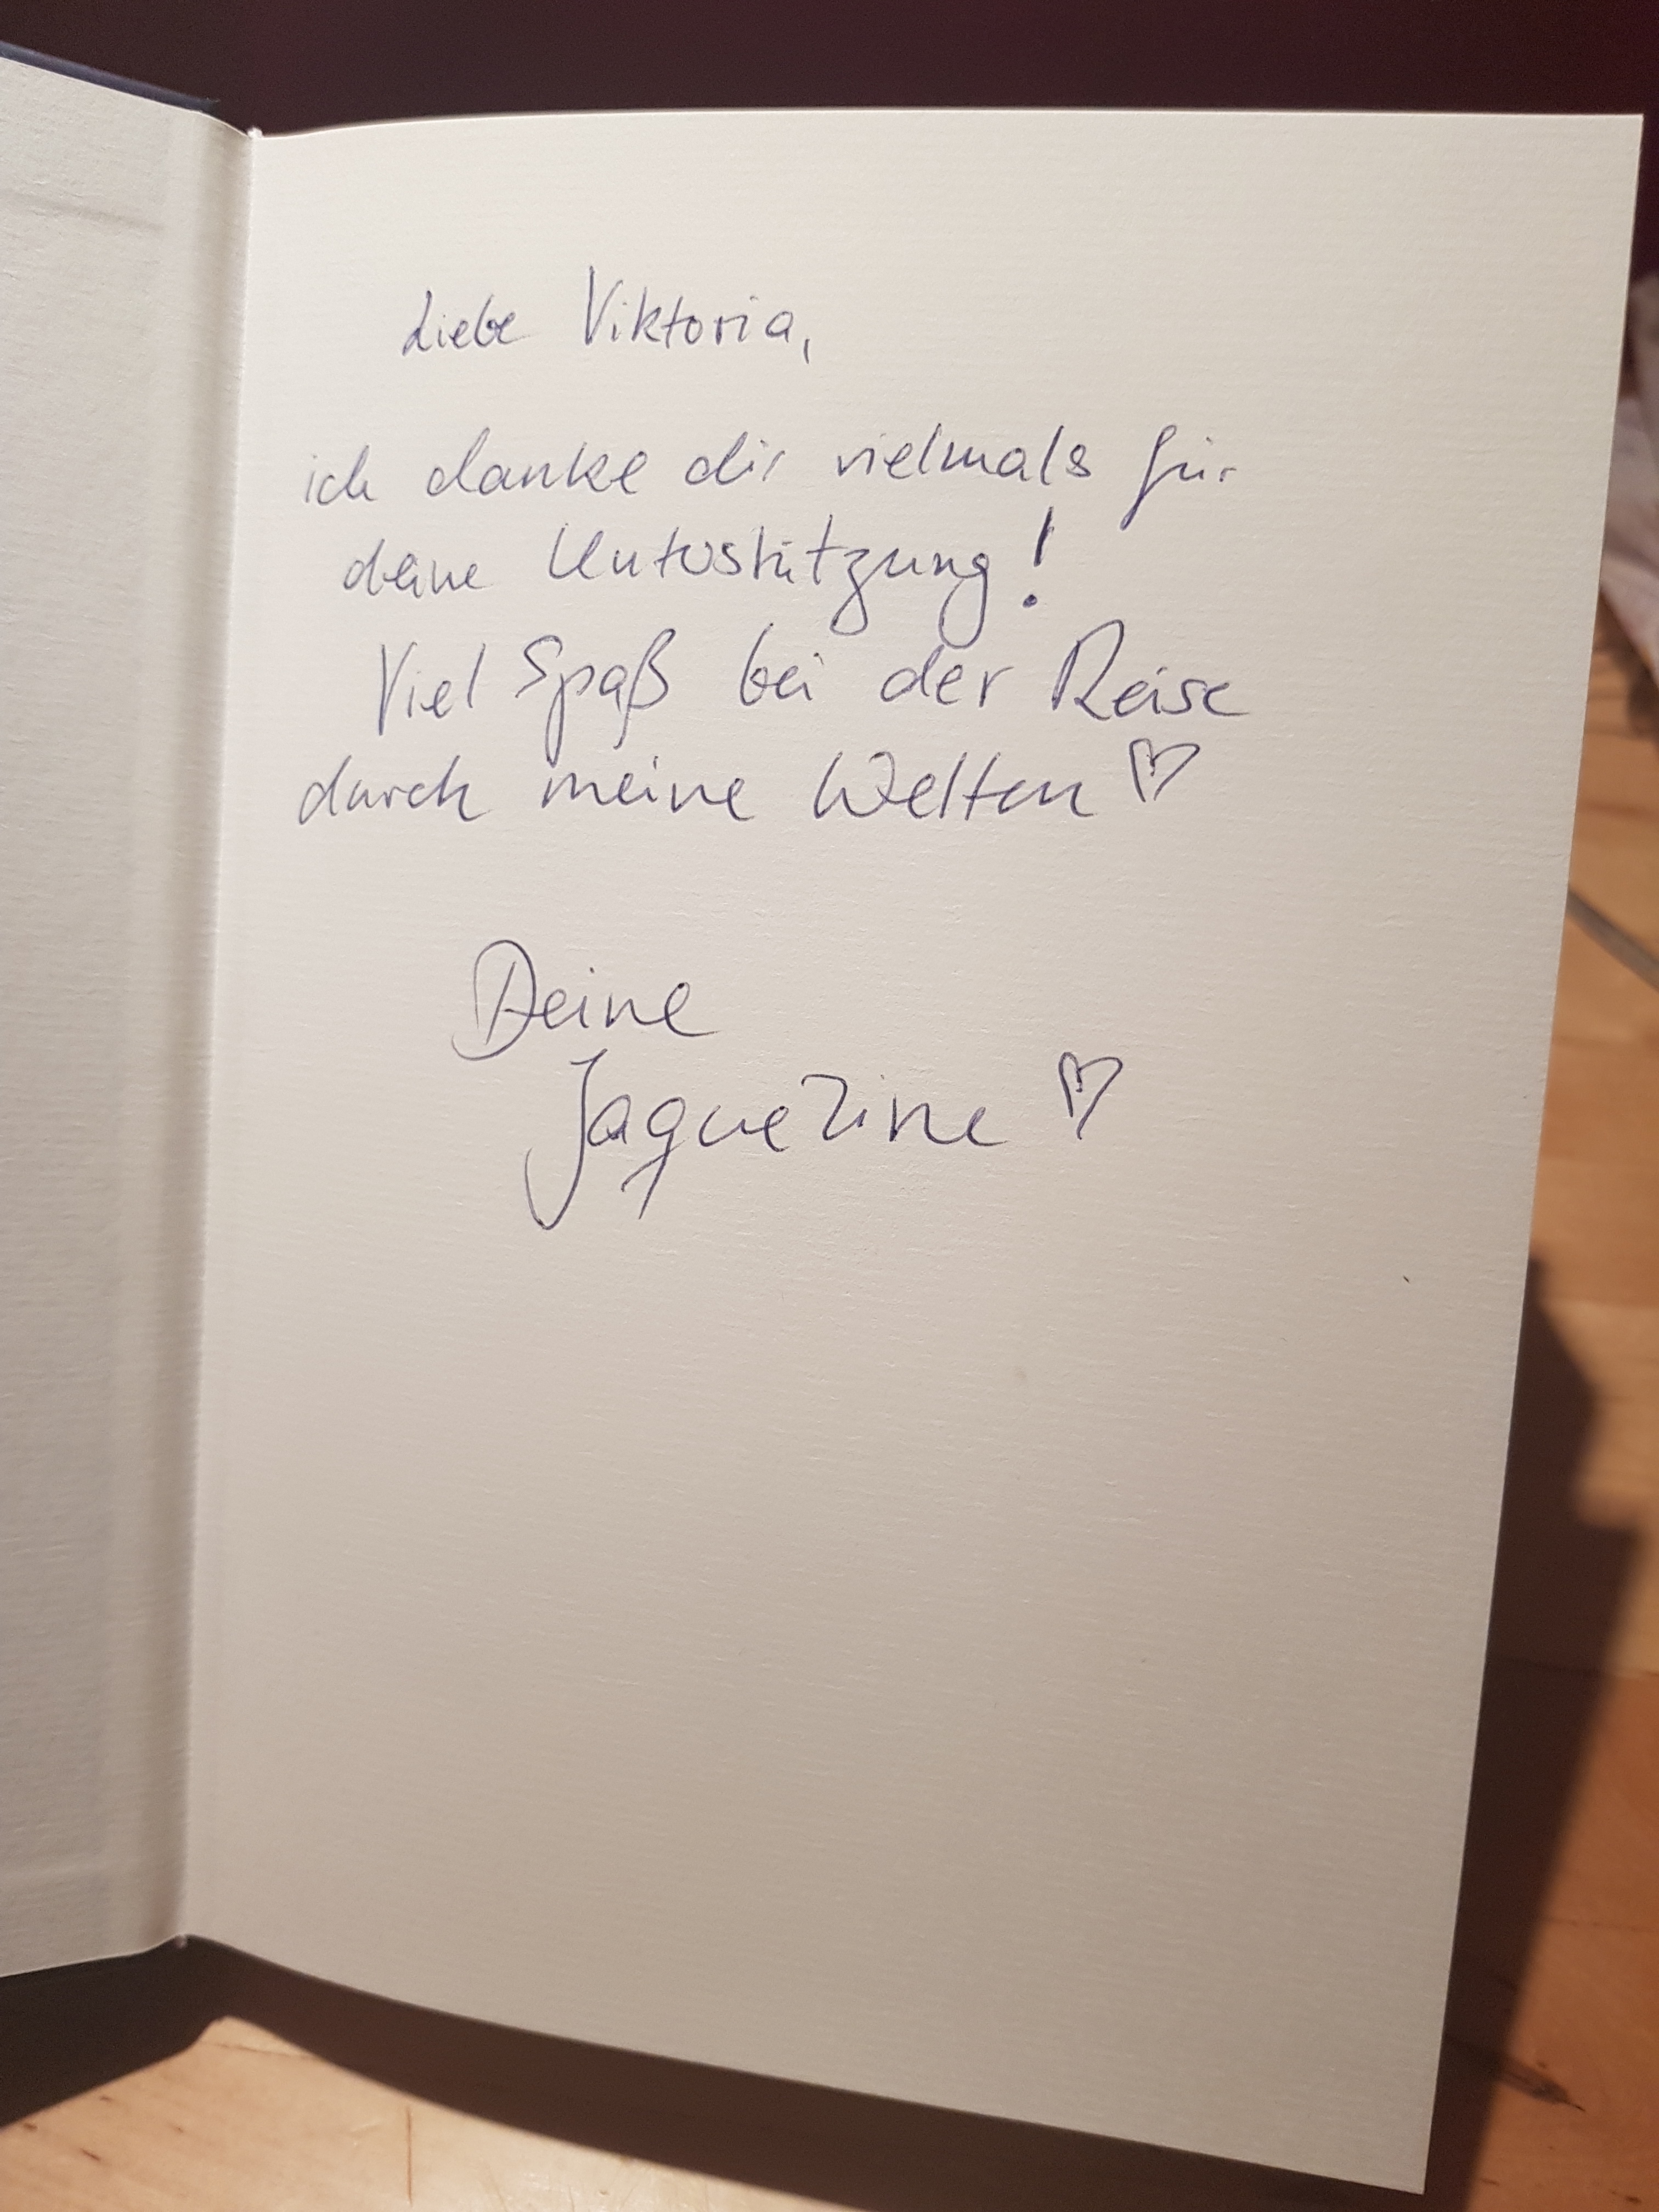 Liebe Viktoria,
ich danke dir vielmals für
deine Unterstützung!
Viel Spaß bei der Reise
durch meine Welten ♡
Deine
Jaqueline ♡